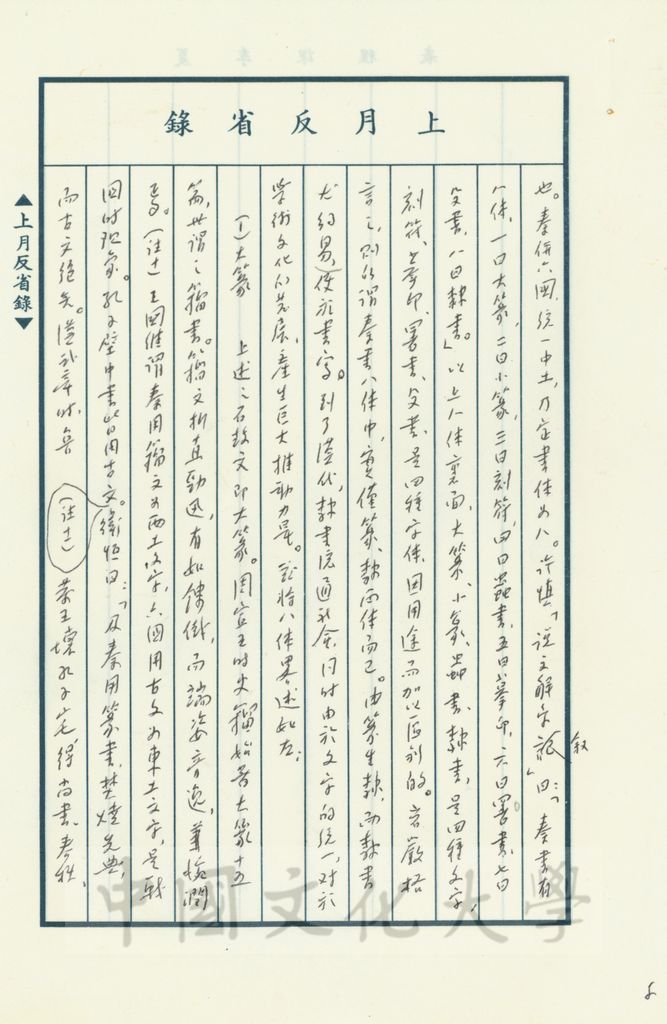 上月反省錄
也。秦併六國,統一中土,乃定書体為八。許慎「說文解字敘」曰:「秦書有
八体,一曰大篆,二曰小篆,三曰刻符,四曰蟲書,五曰摹印,六曰署書,七曰
殳書,八曰隸書。」以上八体裏面,大篆、小篆、蟲書、隸書,是四種文字,
刻符、摹印、署書、殳書,是四種字体,因用途而加以區別的。若嚴格
言之,則所謂秦書八体中,實僅篆、隸兩体而已。由篆生隸,而隸書
尤約易,便於書寫。到了漢代,隸書流通社會,同時由於文字的統一,對於
學術文化的發展,產生巨大推動力量。茲將八体略述如左:
(1)大篆 上述之石鼓文即大篆。周宣王時史籀始著大篆十五
篇,世謂之籀書。籀文折直勁迅,有如鏤鐵,而端姿旁逸,婉潤
焉。(註十)王國維謂秦用籀文為西土文字,六國用古文為東土文字,是戰
國時現象。孔子壁中書皆用古文。衛恒曰:「及秦用篆書,焚燒先典,
而古文絕矣。漢武帝時,魯 (註十一) 恭王壞孔子宅,得尚書、春秋、
▲上月反省錄▼
中國文化大學